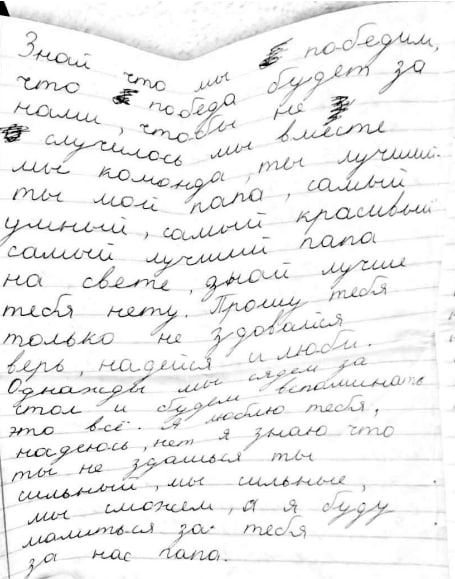 Знай что мы победим,
что победа будет за
нами, чтобы не
случилось мы вместе
мы команда, ты лучший
ты мой папа, самый
умный, самый красивый
самый лучший папа
на свете, знай лучше
тебя нету. Прошу тебя
только не здовайся
верь, надейся и люби.
Однажды мы сядем за
стол и будем вспоминать
это всё. Я люблю тебя,
надеюсь, нет я знаю что
ты не здашься ты
сильный, мы сильные,
мы сможем, а я буду
малиться за тебя
за нас папа.